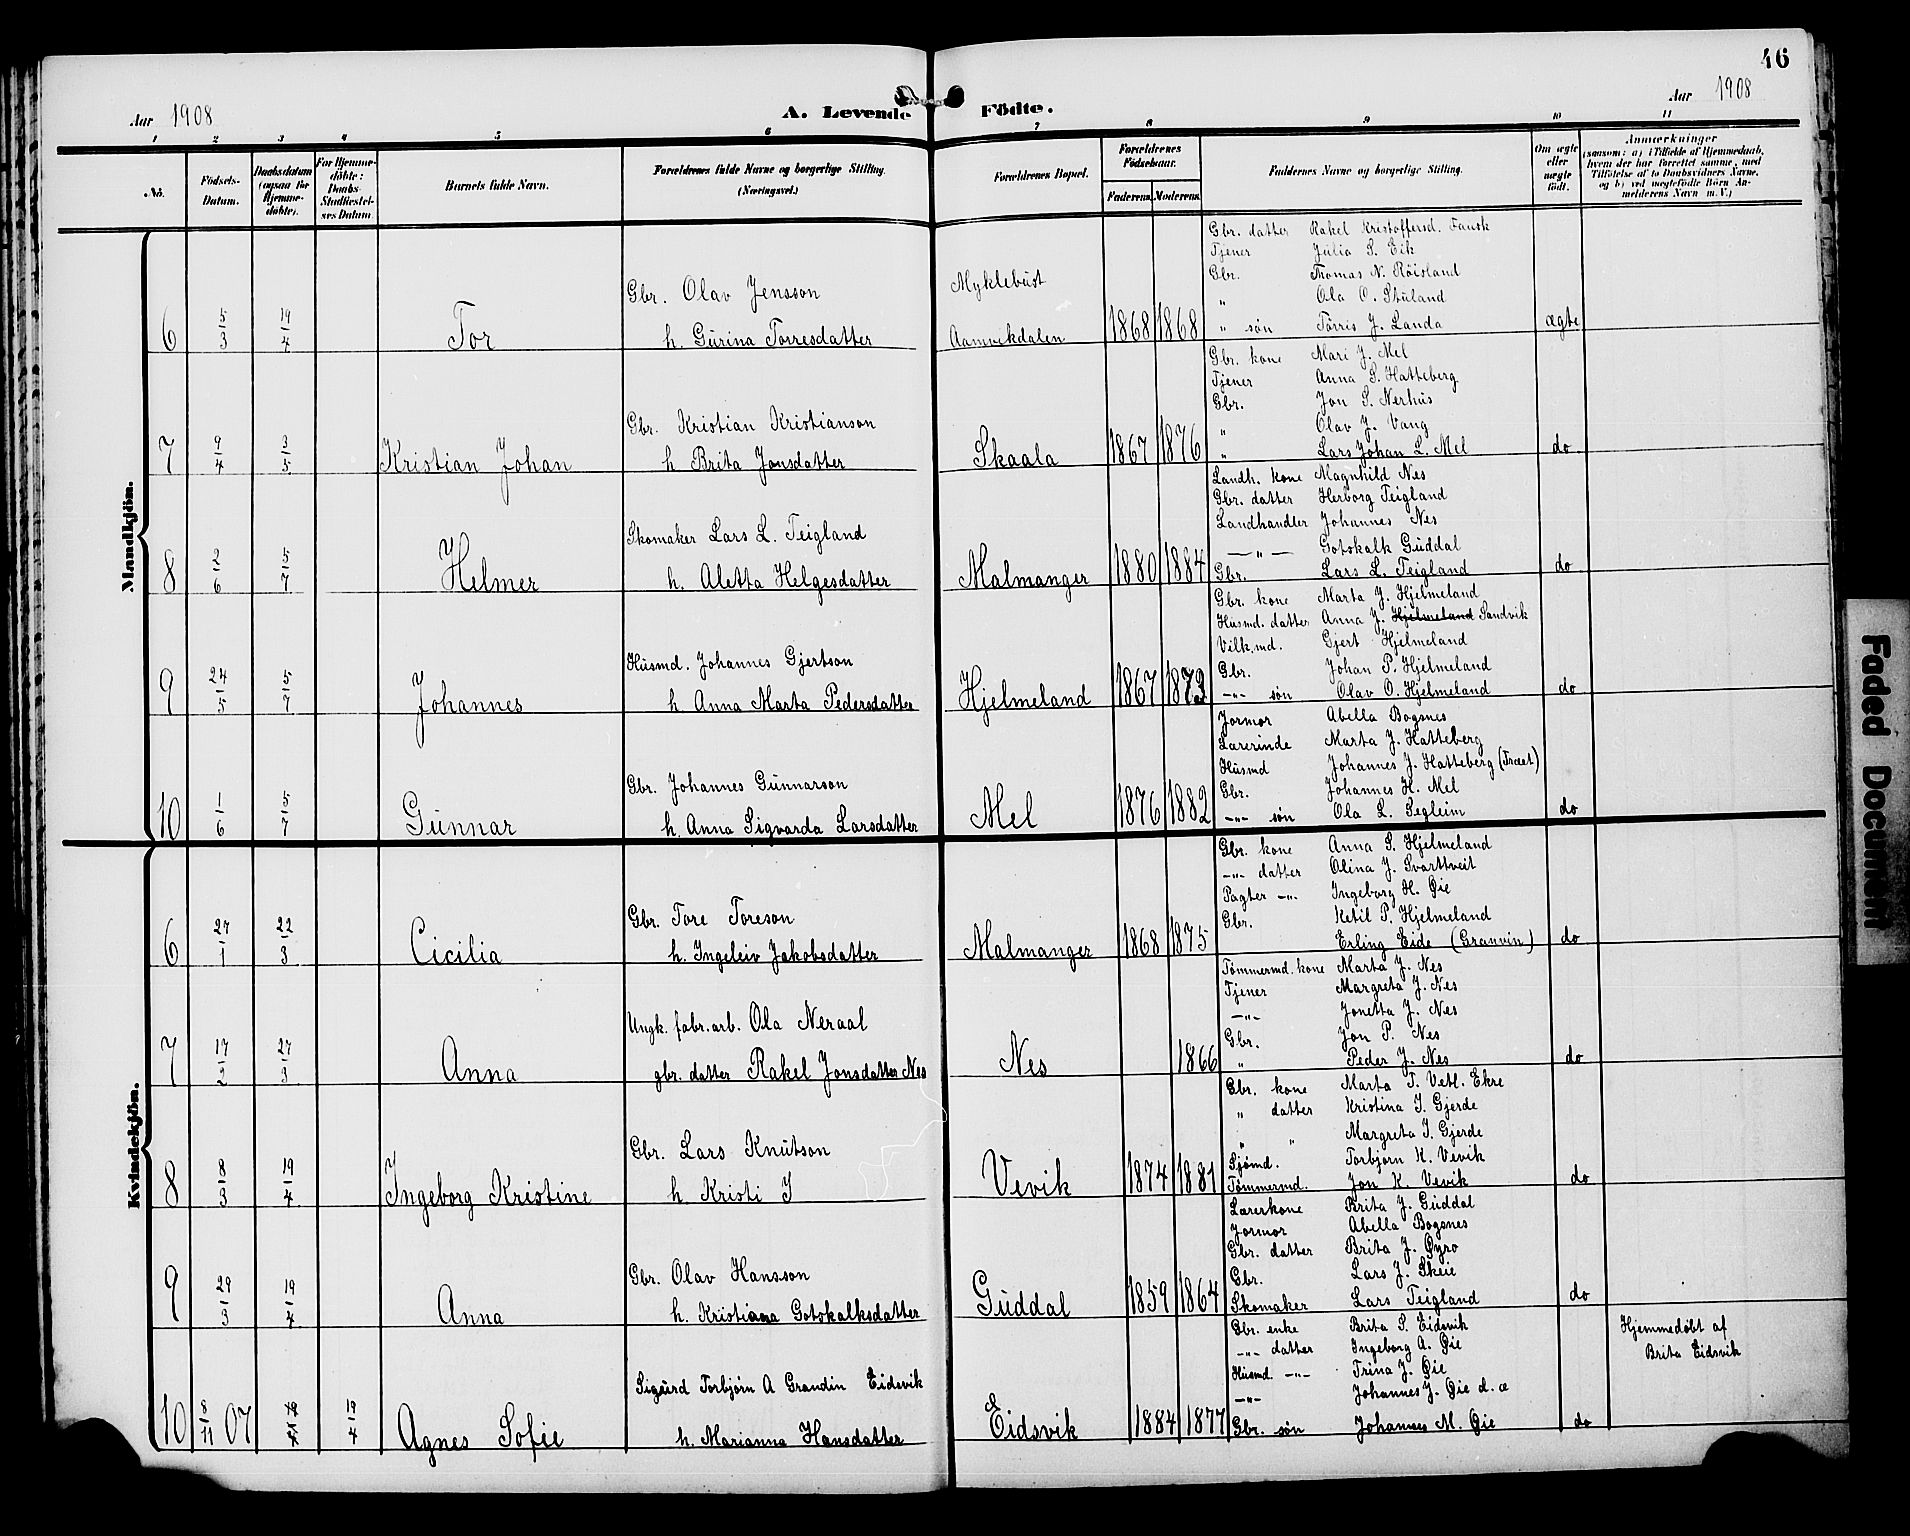 46
Aar 1908
A. Levende Födte.
Aar 1908
1 2 3 4 5 6 7 8 9 10 11
No.
Födsels-Datum.
Daabsdatum (ogsaa for Hjemme-döbte).
For Hjemme-döbte: Daabs-Stadfæstel-ses Datum
Barnets fulde Navn.
Forældrenes fulde Navne og borgerlige Stilling. (Næringsvei.)
Forældrenes Bopæl.
Forældrenes Födselsaar.
Faderens Moderens
Faddernes Navne og borgerlige Stilling.
Om ægte eller uægte födt.
Anmærkninger
(saasom: a) i Tilfælde af Hjemmedaab, hvem der har forrettet samme, med Tilföielse af to Daabsvidners Navne, og b) ved uægtefödte Börn An-melderens Navn m.V.)
Mandkjön.
Gbr. datter Rakel Kristoffersd. Fausk
Tjener Julia S. Eik
Gbr. Thomas N. Röisland
" Ola O. Stuland
" søn Törris J. Landa
6 5/3 19/4 Tor
Gbr. Olav Jensson
h. Gurina Torresdatter
Myklebust
Aamvikdalen 1868 1868 ægte
Gbr. kone Mari J. Mel
Tjener Anna S. Hatteberg
Gbr. Jon S. Nerhus
" Olav J. Vang
" Lars Johan L. Mel
7 9/4 3/5 Kristian Johan
Gbr. Kristian Kristianson
h Brita Jonsdatter
Skaala 1867 1876 do
Landh. kone Magnhild Nes
Gbr. datter Herborg Teigland
Landhandler Johannes Nes
—"— Gotskalk Guddal
Gbr. Lars L. Teigland
8 2/6 5/7 Helmer
Skomaker Lars L. Teigland
h. Aletta Helgesdatter
Malmanger 1880 1884 do
Gbr. kone Marta J. Hjelmeland
Husmd. datter Anna J. Hjelmeland Sandvik
Vilk.md. Gjert Hjelmeland
Gbr. Johan P. Hjelmeland
-"- søn Olav O. Hjelmeland
9 24/5 5/7 Johannes
Husmd. Johannes Gjertson
h Anna Marta Pedersdatter
Hjelmeland 1867 1873 do
Jormor Abella Bogsnes
Lærerinde Marta J. Hatteberg
Husmd Johannes J. Hatteberg (Træet)
Gbr. Johannes H. Mel
-"- søn Ola L. Segleim
10 1/6 5/7 Gunnar
Gbr. Johannes Gunnarson
h. Anna Sigvarda Larsdatter
Mel 1876 1882 do
Kvindekjön.
Gbr. kone Anna S. Hjelmeland
-"- datter Olina J. Svarttveit
Pagter -"- Ingeborg H. Øie
Gbr. Ketil P. Hjelmeland
Erling Eide (Granvin)
6 27/1 22/3 Cicilia
Gbr. Tore Toreson
h. Ingeleiv Jakobsdatter
Malmanger 1868 1875 do
Tømmermd. kone Marta J. Nes
Tjener Margreta J. Nes
-"- Jonetta J. Nes
Gbr. Jon P. Nes
" Peder J. Nes
7 17/2 27/3 Anna
Ungk. fabr.arb. Ola Neraal
gbr. datter Rakel Jonsdatter Nes
Nes 1866 do
Gbr. kone Marta T. Vetl. Ekre
" datter Kristina I. Gjerde
" " Margreta I. Gjerde
Sjømd. Torbjørn K. Vevik
Tømmermd. Jon K. Vevik
8 8/3 19/4 Ingeborg Kristine
Gbr. Lars Knutson
h. Kristi I
Vevik 1874 1881 do
Lærerkone Brita J. Guddal
Jormor Abella Bogsnes
Gbr. datter Brita J. Øyro
Gbr. Lars J. Skeie
Skomaker Lars Teigland
9 29/3 19/4 Anna
Gbr. Olav Hansson
h. Kristiana Gotskalksdatter
Guddal 1859 1864 do
Gbr. enke Brita S. Eidsvik
-"- datter Ingeborg A. Øie
Husmd -"- Trina J. Øie
-"- Johannes J. Øie d. æ
Gbr. søn Johannes M. Øie
10 8/11 07 19/4 19/4 Agnes Sofie
Sigurd Torbjørn A Grandin Eidsvik
h. Marianna Hansdatter
Eidsvik 1884 1877 do
Hjemmedøbt af
Brita Eidsvik
Faded Document